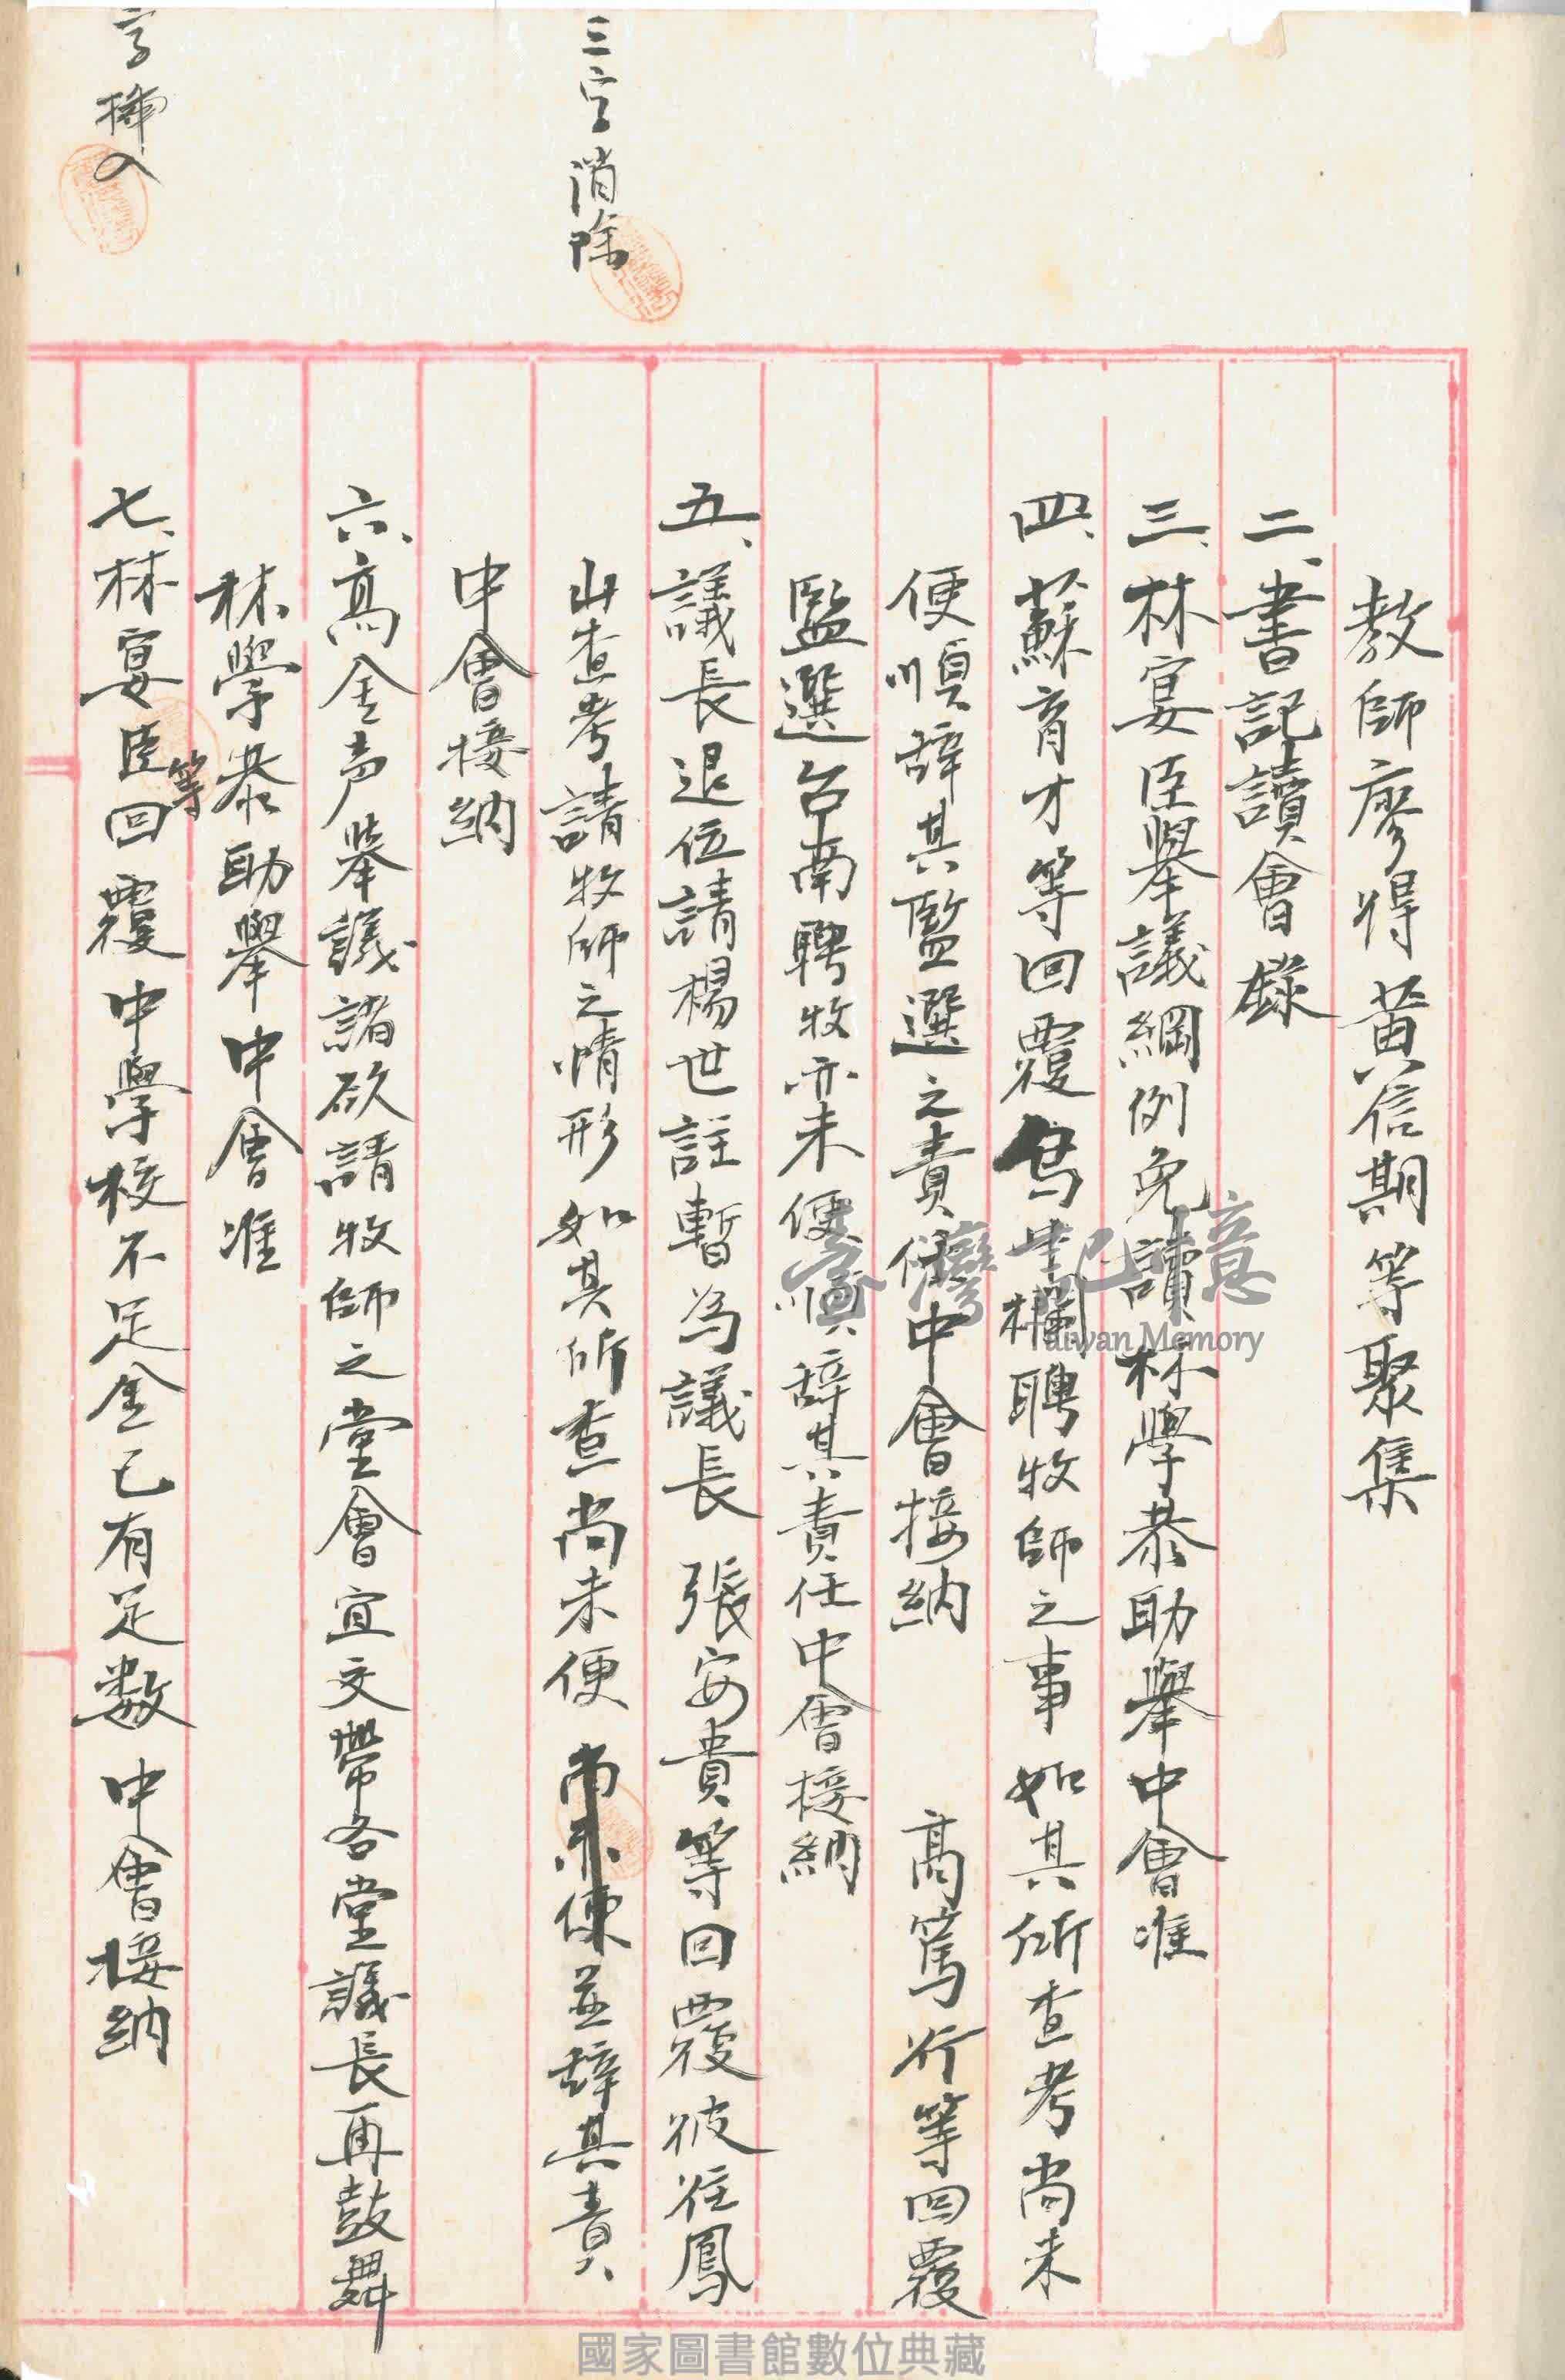 教師廖得黃信期等聚集
二、書記讀會錄
三、林宴臣舉議綱例免讀林學恭助舉中會准
四、蘇育才等回覆為中欄聘牧師之事如其所查考尚未
便順辞其監選之責任中會接納 高篤行等回覆
監選台南聘牧亦未便順辞其責任中會接納
五、議長退位請楊世註暫為議長 張安貴等回覆彼往鳳
山查考請牧師之情形如其所查尚未便尚未便並辞其責
中會接納
六、高金声舉議諸欲請牧師之堂會宜交帶各堂議長再鼓舞
林學恭助舉中會准
七、林宴臣等回覆中學校不足金已有足数中會接納
三字消除
字插入
臺灣記憶
Taiwan Memory
國家圖書館數位典藏